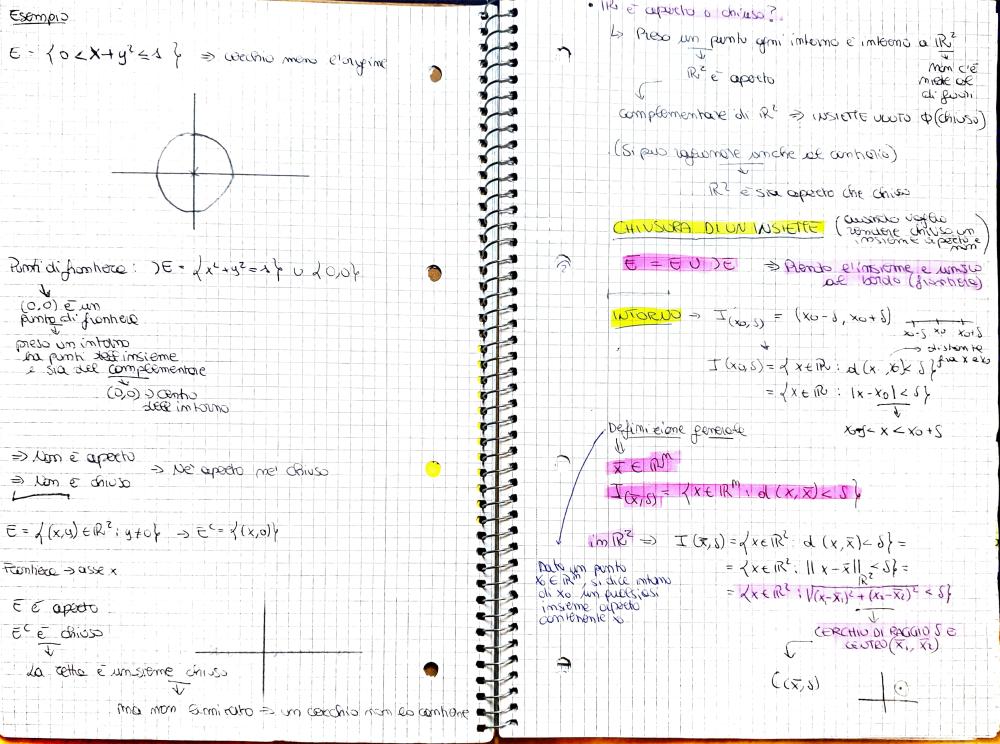 Esempio
E = { 0 < x + y² ≤ 1 } ⇒ cerchio meno l'origine
Punti di frontiera: ∂E = { x² + y² = 1 } ∪ { 0,0 }
(0,0) è un
punto di frontiera
preso un intorno
ha punti dell'insieme
e sia del complementare
(0,0) centro
dell'intorno
⇒ Non è aperto
→ Né aperto né chiuso
⇒ Non è chiuso
E = { (x,y) ∈ ℝ² : y ≠ 0 } → E^c = { (x,0) }
Frontiera → asse x
E è aperto
E^c è chiuso
La retta è un insieme chiuso
ma non limitato ⇒ un cerchio non lo contiene
• ℝ² è aperto o chiuso?
↳ Preso un punto ogni intorno è interno a ℝ²
non c'è
niente al
di fuori
ℝ² è aperto
complementare di ℝ² ⇒ INSIEME VUOTO ϕ (chiuso)
(Si può ragionare anche al contrario)
ℝ² è sia aperto che chiuso
CHIUSURA DI UN INSIEME (quando voglio
rendere chiuso un
insieme aperto e
non)
E̅ = E ∪ ∂E ⇒ Prendo l'insieme e unisco
al bordo (frontiera)
INTORNO → I(x₀,δ) = (x₀-δ, x₀+δ)
x₀-δ x₀ x₀+δ
→ distanza
fra x e x₀
I(x₀,δ) = { x ∈ ℝ : d(x, x₀) < δ }
= { x ∈ ℝ : |x - x₀| < δ }
x₀-δ < x < x₀+δ
Definizione generale
x̄ ∈ ℝⁿ
I(x̄,δ) = { x ∈ ℝⁿ : d(x, x̄) < δ }
in ℝ² ⇒ I(x̄,δ) = { x ∈ ℝ² : d(x, x̄) < δ } =
= { x ∈ ℝ² : ‖x - x̄‖ℝ² < δ } =
= { x ∈ ℝ² : √(x-x̄₁)² + (x₂-x̄₂)² < δ }
Dato un punto
x₀ ∈ ℝⁿ, si dice intorno
di x₀ un qualsiasi
insieme aperto
contenente x₀
CERCHIO DI RAGGIO δ E
CENTRO (x̄₁, x̄₂)
C(x̄,δ)